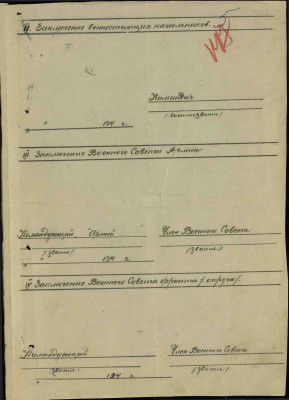 II. Заключение вышестоящих начальников
Командир
(воинск. звание)
" " 194 г.
III Заключение Военного Совета Армии
Командующий "Армией" Член Военного Совета
(звание) (звание)
" 194 г.
IV Заключение Военного Совета фронта /округа/.
Командующий Член Военного Совета
звание: (звание)
" 194 г.